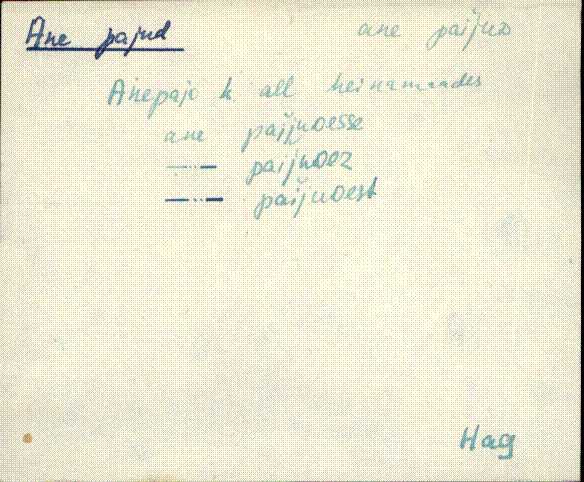 Ane pajud ane paĭjuo
Anepajo k all heinamaades
ane paĭjuoesse
—··— paĭjuoez
—··— paĭjuoest
Hag